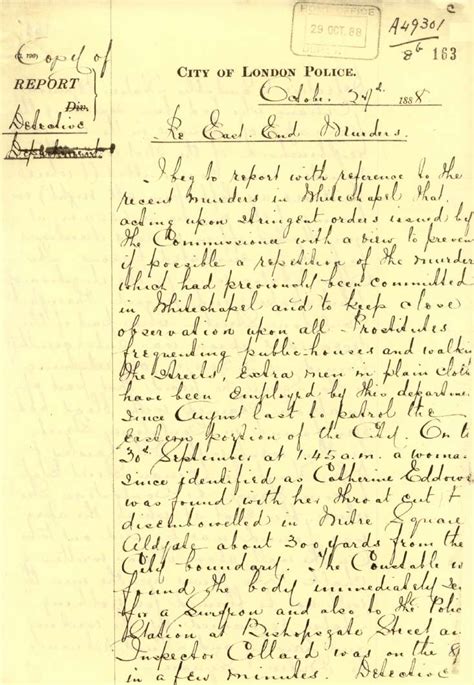 C
HOME OFFICE
29 OCT. 88
A49301
86 163
Copy of
REPORT
Div.
Detective
Department
CITY OF LONDON POLICE.
October 27th 1888
Re East End Murders.
I beg to report with reference to the
recent murders in Whitechapel that
acting upon stringent orders issued by
the Commissioner with a view to preven
if possible a repetition of the murder
which had previously been committed
in Whitechapel and to keep close
observation upon all Prostitutes
frequenting public-houses and walkin
the streets, extra men in plain cloth
have been employed by this departme
since August last to patrol the
Eastern portion of the City. On t
30th September at 1.45 a.m. a woma
since identified as Catherine Eddowe
was found with her throat cut &
disembowelled in Mitre Square
Aldgate about 300 yards from the
City boundary. The Constable w
found the body immediately se
for a Surgeon and also to the Polic
Station at Bishopsgate Street an
Inspector Collard was on the s
in a few minutes. Detective